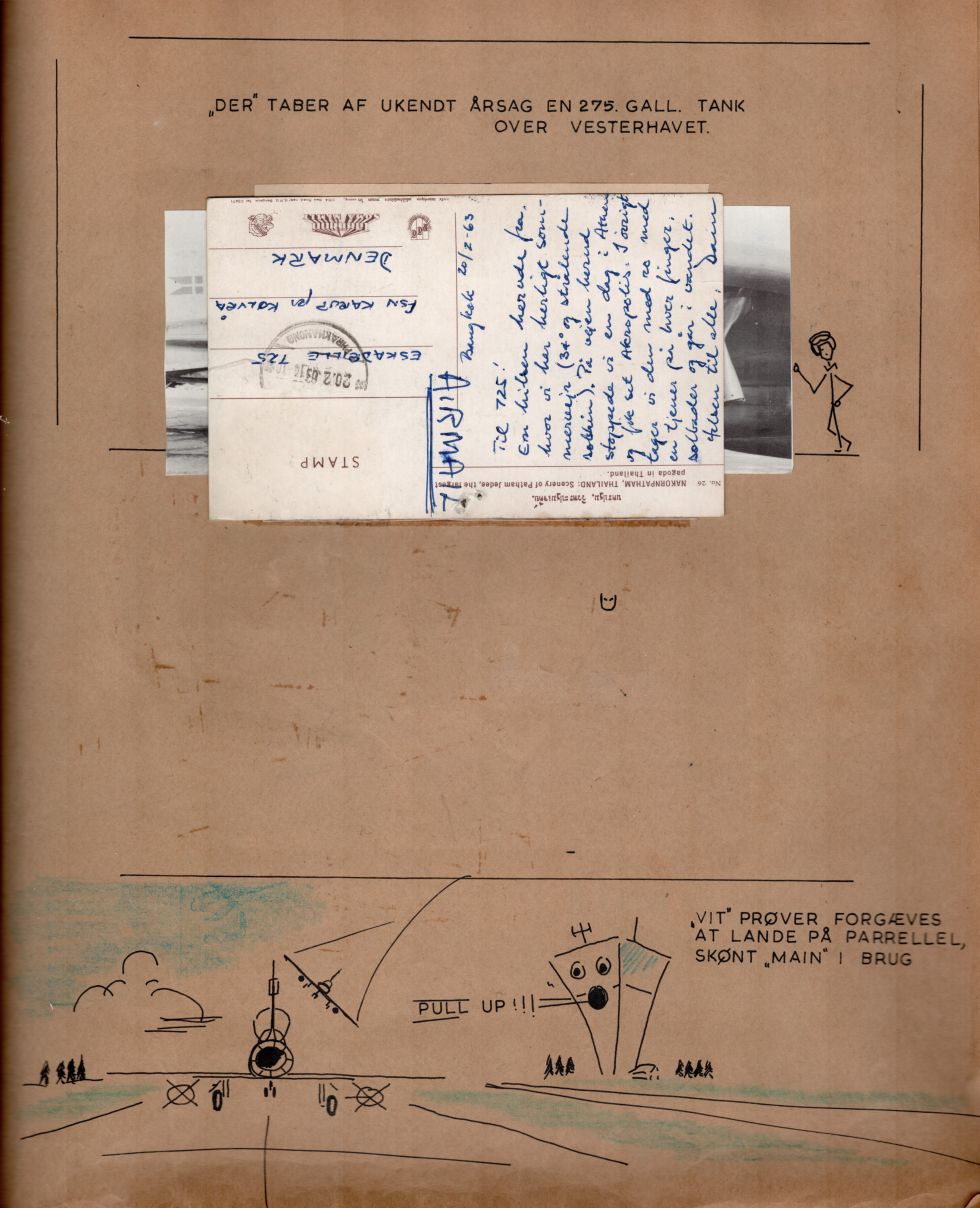 „DER" TABER AF UKENDT ÅRSAG EN 275. GALL. TANK
OVER VESTERHAVET.
Bangkok 20/2-63
Til 725!
En hilsen hernede fra,
hvor vi har herligt som-
mervejr (34° og strålende
solskin). På vejen herned
stoppede vi en dag i Athen
og fik set Akropolis. I øvrigt
tager vi den med ro med
en tjener på hver finger,
solbader og går i vandet.
Hilsen til alle,
AIRMAIL
ESKADRILLE 725
FSN KARUP pr KØLVRÅ
DENMARK
STAMP
20.2.63
No. 26
NAKORNPATHAM, THAILAND: Scenery of Patham Jedee, the largest
pagoda in Thailand.
„VIT" PRØVER FORGÆVES
AT LANDE PÅ PARRELLEL,
SKØNT „MAIN" I BRUG
PULL UP!!!